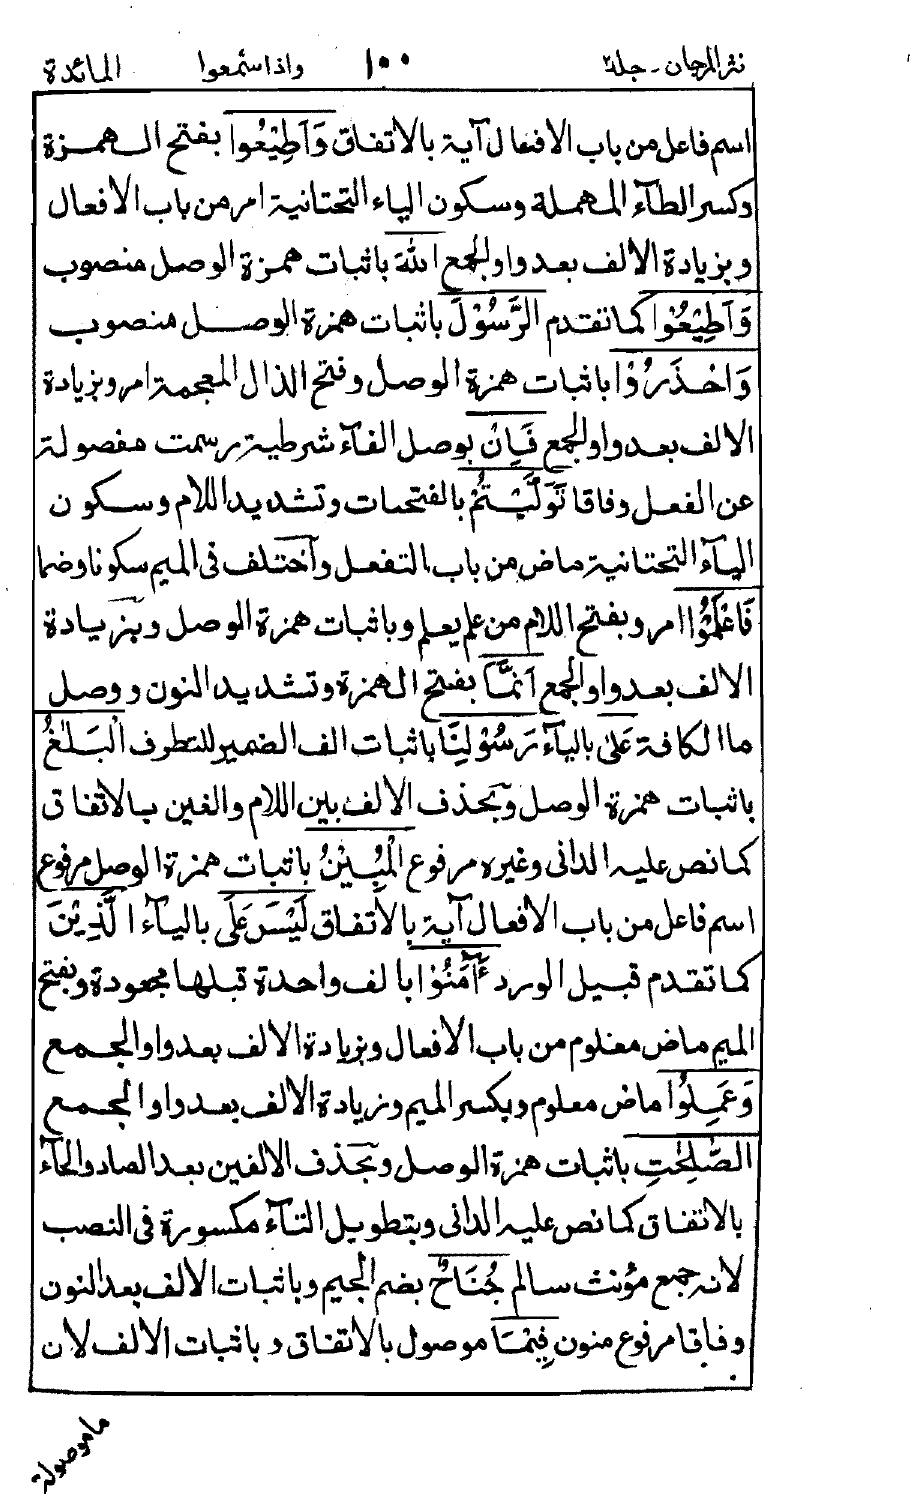 نثر المرجان - جلد٢ ١٠٠ واذا سمعوا المائدة
اسم فاعل من باب الافعال آية بالاتفاق وَاَطِيْعُوا بفتح الهمزة
وكسر الطآء المهملة وسكون الياء التحتانية امر من باب الافعال
وبزيادة الالف بعد واو الجمع اللّٰهَ باثبات همزة الوصل منصوب
وَاَطِيْعُوْا كما تقدم الرَّسُوْلَ باثبات همزة الوصل منصوب
وَاحْذَرُوْا باثبات همزة الوصل وفتح الذال المعجمة امر وبزيادة
الالف بعد واو الجمع فَاِنْ بوصل الفآء شرطية رسمت مفصولة
عن الفعل وفاقا تَوَلَّيْتُمْ بالفتحات وتشديد اللام وسكون
اليآء التحتانية ماض من باب التفعل وآختلف فى الميم سكونا وضما
فَاعْلَمُوْٓا امر وبفتح اللام من علم يعلم وباثبات همزة الوصل وبزيادة
الالف بعد واو الجمع اَنَّمَا بفتح الهمزة وتشديد النون ووصل
ما الكافة عَلٰى باليآء رَسُوْلِنَا باثبات الف الضمير للتطرف الْبَلٰغُ
باثبات همزة الوصل وبحذف الالف بين اللام والغين بالاتفاق
كما نص عليه الدانى وغيره مرفوع الْمُبِيْنُ باثبات همزة الوصل مرفوع
اسم فاعل من باب الافعال آية بالاتفاق لَيْسَ عَلَى باليآء الَّذِيْنَ
كما تقدم قبيل الورد ءٰٓامَنُوْا بالف واحدة قبلها مجعودة وبفتح
الميم ماض معلوم من باب الافعال وبزيادة الالف بعد واو الجمع
وَعَمِلُوْا ماض معلوم وبكسر الميم وزيادة الالف بعد واو الجمع
الصّٰلِحٰتِ باثبات همزة الوصل وبحذف الالفين بعد الصاد والحآء
بالاتفاق كما نص عليه الدانى وبتطويل التآء مكسورة فى النصب
لانه جمع مؤنث سالم جُنَاحٌ بضم الجيم وباثبات الالف بعد النون
وفاقا مرفوع منون فِيْمَا موصول بالاتفاق وباثبات الالف لان
ما موصولة